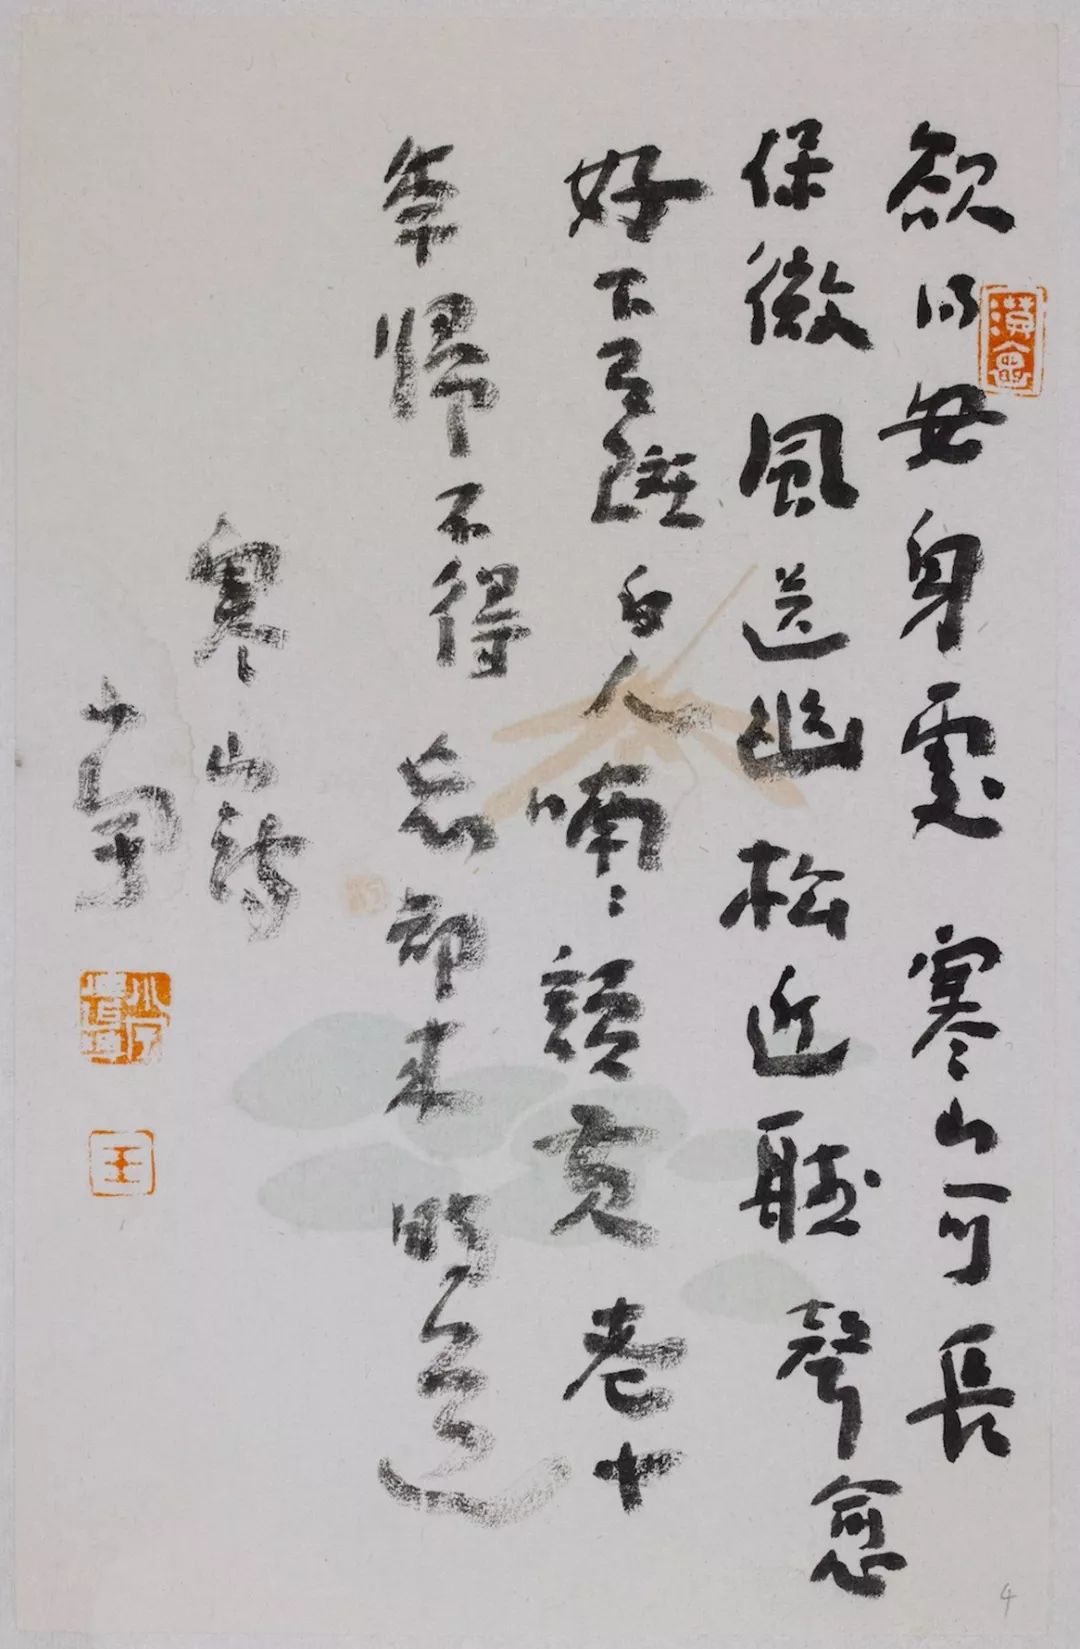 欲得安身處寒山可長
保微風送幽松近聽聲愈
好下有斑白人喃〻讀黃老十
年歸不得忘却來時道
寒山詩
王